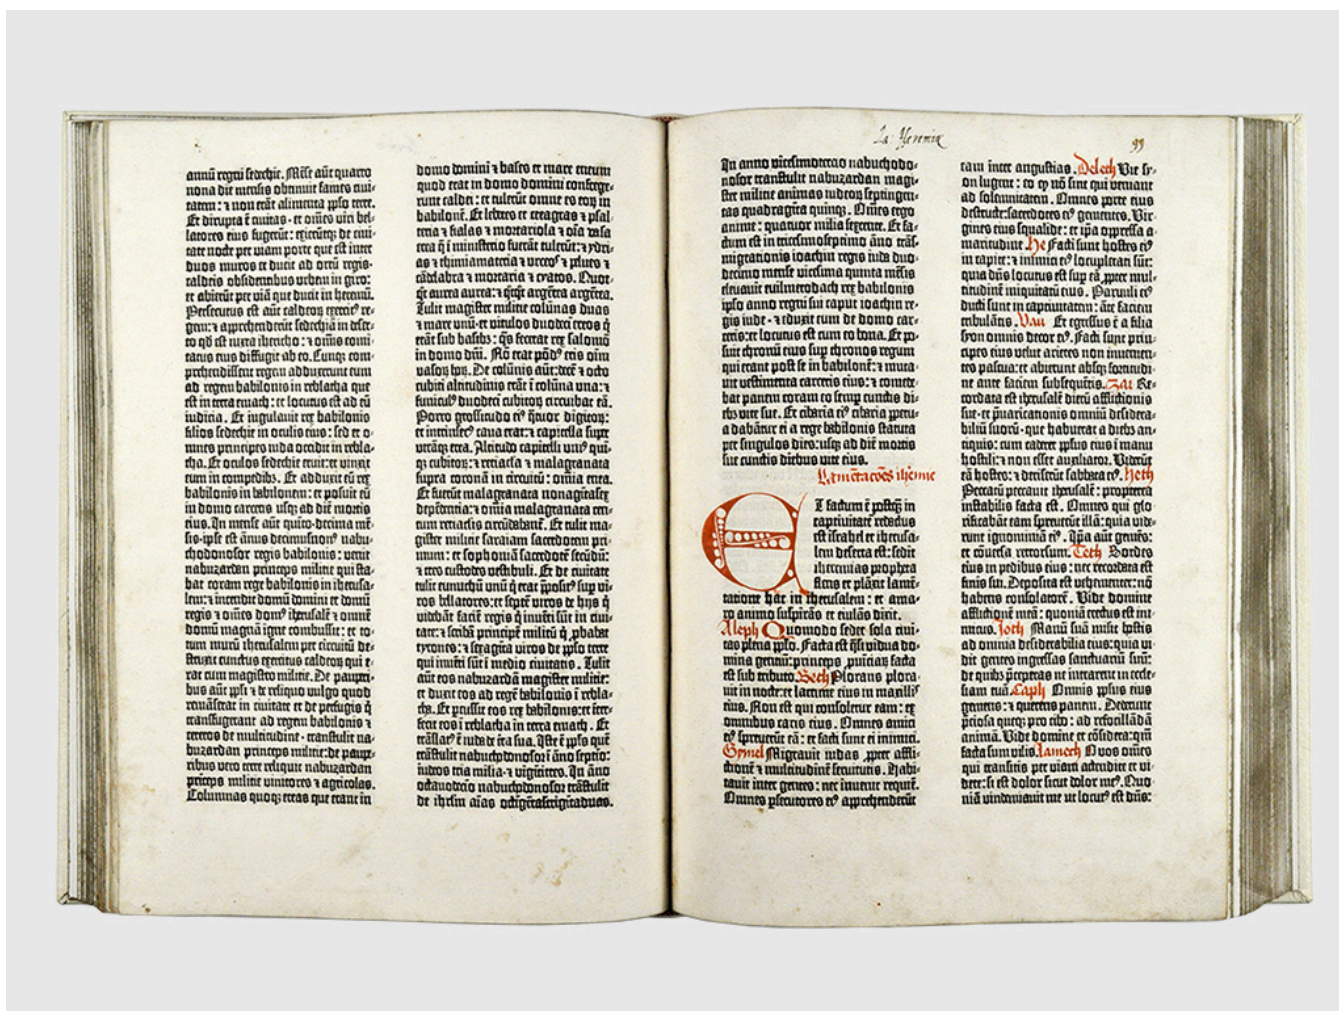 annū regni sedechie. Mēse aūt quarto
nona die mensis obtinuit fames civi-
tatem: ⁊ non erāt alimenta pplo terre.
Et dirupta ē civitas · et omēs viri bel-
latores eius fugerūt: exierūtqȝ de civi-
tate nocte per viam porte que est inter
duos muros et ducit ad ortū regis·
caldeis obsidentibus urbem in giro:
et abierūt per viā que ducit in heremū.
Persecutus est aūt caldeoꝝ exercit⁹ re-
gem: ⁊ apprehenderūt sedechiā in deser-
to qd̄ est iuxta ihericho: ⁊ om̄is comi-
tatus eius diffugit ab eo. Cunqȝ com-
prehendissent regem adduxerunt eum
ad regem babilonis in reblatha que
est in terra emath: et locutus est ad eū
iudicia. Et iugulavit rex babilonis
filios sedechie in oculis eius: sed et o-
mnes principes iuda occidit in rebla-
tha. Et oculos sedechie eruit: et vinxit
eum in compedibȝ. Et adduxit eū rex
babilonis in babilonem: et posuit eū
in domo carceris usqȝ ad diē mortis
eius. In mense aūt quīto · decima mē-
sis · ipse est ānus decimusnon⁹ nabu-
chodonosor regis babilonis: venit
nabuzardan princeps militie qui sta-
bat coram rege babilonis in iherusa-
lem: ⁊ incendit domū domini et domū
regis ⁊ omēs dom⁹ iherusalē ⁊ omnē
domū magnā igne combussit: et to-
tum murū iherusalem per circuitū de-
struxit cunctus exercitus caldeoꝝ qui e-
rat cum magistro militie. De pauperi-
bus aūt ppli ⁊ de reliquo vulgo quod
remāserat in civitate et de perfugis q̄
transfugerant ad regem babilonis ⁊
ceteros de multitudine · transtulit na-
buzardan princeps militie: de paupe-
ribus vero terre reliquit nabuzardan
prīceps militie vinitores ⁊ agricolas.
Columnas quoqȝ ereas que erant in
domo domini ⁊ bases et mare eneum
quod erat in domo domini confrege-
runt caldei: et tulerūt omne es eoꝝ in
babilonē. Et lebetes et creagras ⁊ psal-
teria ⁊ fialas ⁊ mortariola ⁊ om̄a vasa
erea q̄ ī ministerio fuerāt tulerūt: ⁊ ydri-
as ⁊ thimiamateria ⁊ urceos ⁊ pelues ⁊
cādelabra ⁊ mortaria ⁊ cyatos. Quot-
quot aurea aurea: ⁊ quotquot argētea argētea.
Tulit magister militie colūnas duas
⁊ mare unū · et vitulos duodecī ereos q̄
erāt sub basibȝ: q̄s fecerat rex salomō
in domo dn̄i. Nō erat pōd⁹ eris oīm
vasoꝝ hoꝝ. De colūnis aūt: decē ⁊ octo
cubiti altitudinis erāt ī colūna una: ⁊
funicul⁹ duodecī cubitoꝝ circuibat eā.
Porro grossitudo ei⁹ q̄tuor digitoꝝ:
et intrinsec⁹ cava erat: ⁊ capitella super
utrāqȝ erea. Altitudo capitelli uni⁹ quī-
qȝ cubitoꝝ: ⁊ reciacla ⁊ malagranata
supra coronā in circuitu: omīa erea.
Et fuerūt malagranata nonagītasex
depēdētia: ⁊ omīa malagranata cen-
tum reciaclis circūdabant̄. Et tulit ma-
gister militie saraiam sacerdotem pri-
mum: et sophoniā sacerdotē secūdū:
⁊ tres custodes vestibuli. Et de civitate
tulit eunuchū unū q̄ erat p̄posit⁹ sup vi-
ros bellatores: et septē viros de hijs q̄
vidēbāt faciē regis q̄ invēti sūt in civi-
tate: ⁊ scribā principē militū q̄ probabat
tyrones: ⁊ sexagīta viros de pplo terre
qui invēti sūt ī medio civitatis. Tulit
aūt eos nabuzardā magister militie:
et duxit eos ad regē babilonis ī rebla-
tha. Et pcussit eos rex babilonis: et īter-
fecit eos ī reblatha in terra emath. Et
trāslat⁹ ē iuda de t̄ra sua. Iste ē ppls quē
trāstulit nabuchodonosor: ī āno septio:
iudeos tria milia · ⁊ vigītitres. In āno
octavodecīo nabuchodonosor trāstulit
de ihrl̄m aīas octīgētastrigītaduas.
La: Hieremiæ
99
In anno vicesimotercio nabuchodo-
nosor transtulit nabuzardan magi-
ster militie animas iudeoꝝ septingen-
tas quadragīta quinqȝ. Om̄es ergo
anime: quatuor milia sexcente. Et fa-
ctum est in tricesimoseptimo āno trās-
migrationis ioachin regis iuda duo-
decimo mense vicesima quinta mēsis
elevavit evilmerodach rex babilonis
ipso anno regni sui caput ioachin re-
gis iude · ⁊ eduxit eum de domo car-
ceris: et locutus est cum eo bona. Et po-
suit thronū eius sup thronos regum
qui erant post se in babilonē: ⁊ muta-
vit vestimenta carceris eius: ⁊ comede-
bat panem coram eo semp cunctis di-
ebȝ vite sue. Et cibaria ei⁹ cibaria ppetu-
a dabātur ei a rege babilonis statuta
per singulos dies: usqȝ ad diē mortis
sue cunctis diebus vite eius.
Lamētacōes iheremie
Et factum ē postqȝ in
captivitatē redactus
est israhel et iherusa-
lem deserta est: sedit
iheremias propheta
flens et plāxit lamē-
tatione hac in iherusalem: et ama-
ro animo suspirās et eiulās dixit.
Aleph Quomodo sedet sola civi-
tas plena pplo. Facta est q̄si vidua do-
mina gentiū: princeps provīciaꝝ facta
est sub tributo. Beth Plorans plora-
vit in nocte: et lacrime eius in maxill⁹
eius. Non est qui consoletur eam: ex
omnibus caris eius. Omnes amici
ei⁹ spreverūt eā: et facti sunt ei inimici.
Gymel Migravit iudas propter affli-
ctionē ⁊ multitudinē servitutis. Habi-
tavit inter gentes: nec invenit requiē.
Omnes psecutores ei⁹ apprehenderūt
eam inter angustias. Deleth Vie sy-
on lugent: eo qȝ nō sint qui veniant
ad solennitatem. Omnes porte eius
destructe: sacerdotes ei⁹ gementes. Vir-
gines eius squalide: et ip̄a oppressa a-
maritudine. He Facti sunt hostes ei⁹
in capite: ⁊ inimici ei⁹ locupletati sūt:
quia dn̄s locutus est sup eā propter mul-
titudinē iniquitatū eius. Parvuli ei⁹
ducti sunt in captivitatem: āte faciem
tribulātis. Vau Et egressus ē a filia
syon omnis decor ei⁹. Facti sunt prin-
cipes eius velut arietes non invenien-
tes pascua: et abierunt absqȝ fortitudi-
ne ante faciem subsequētis. Zai Re-
cordata est iherusalē dieꝝ afflictionis
sue · et p̄varicationis omniū desidera-
biliū suorū · que habuerat a diebȝ an-
tiquis: cum caderet ppl̄us eius ī manu
hostili: ⁊ non esset auxiliator. Viderūt
eā hostes: ⁊ deriserūt sabbata ei⁹. Heth
Peccatū peccavit iherusalē: propterea
instabilis facta est. Omnes qui glo-
rificabāt eam spreverūt illā: quia vide-
runt ignominiā ei⁹. Ip̄a aūt gemēs:
et cōversa retrorsum. Teth Sordes
eius in pedibus eius: nec recordata est
finis sui. Deposita est vehementer: nō
habens consolatorē. Vide domine
afflictionē meā: quoniā erectus est ini-
micus. Joth Manū suā misit hostis
ad omnia desiderabilia eius: quia vi-
dit gentes ingressas sanctuariū suū:
de quibȝ p̄ceperas ne intrarent in eccle-
siam tuā. Caph Omnis ppl̄us eius
gemens: ⁊ querens panem. Dederunt
p̄ciosa queqȝ pro cibo: ad refocillādā
animā. Vide domine et cōsidera: qm̄
facta sum vilis. Lamech O vos om̄es
qui transitis per viam attendite et vi-
dete: si est dolor sicut dolor me⁹. Quo-
niā vindemiavit me ut locut⁹ est dn̄s: